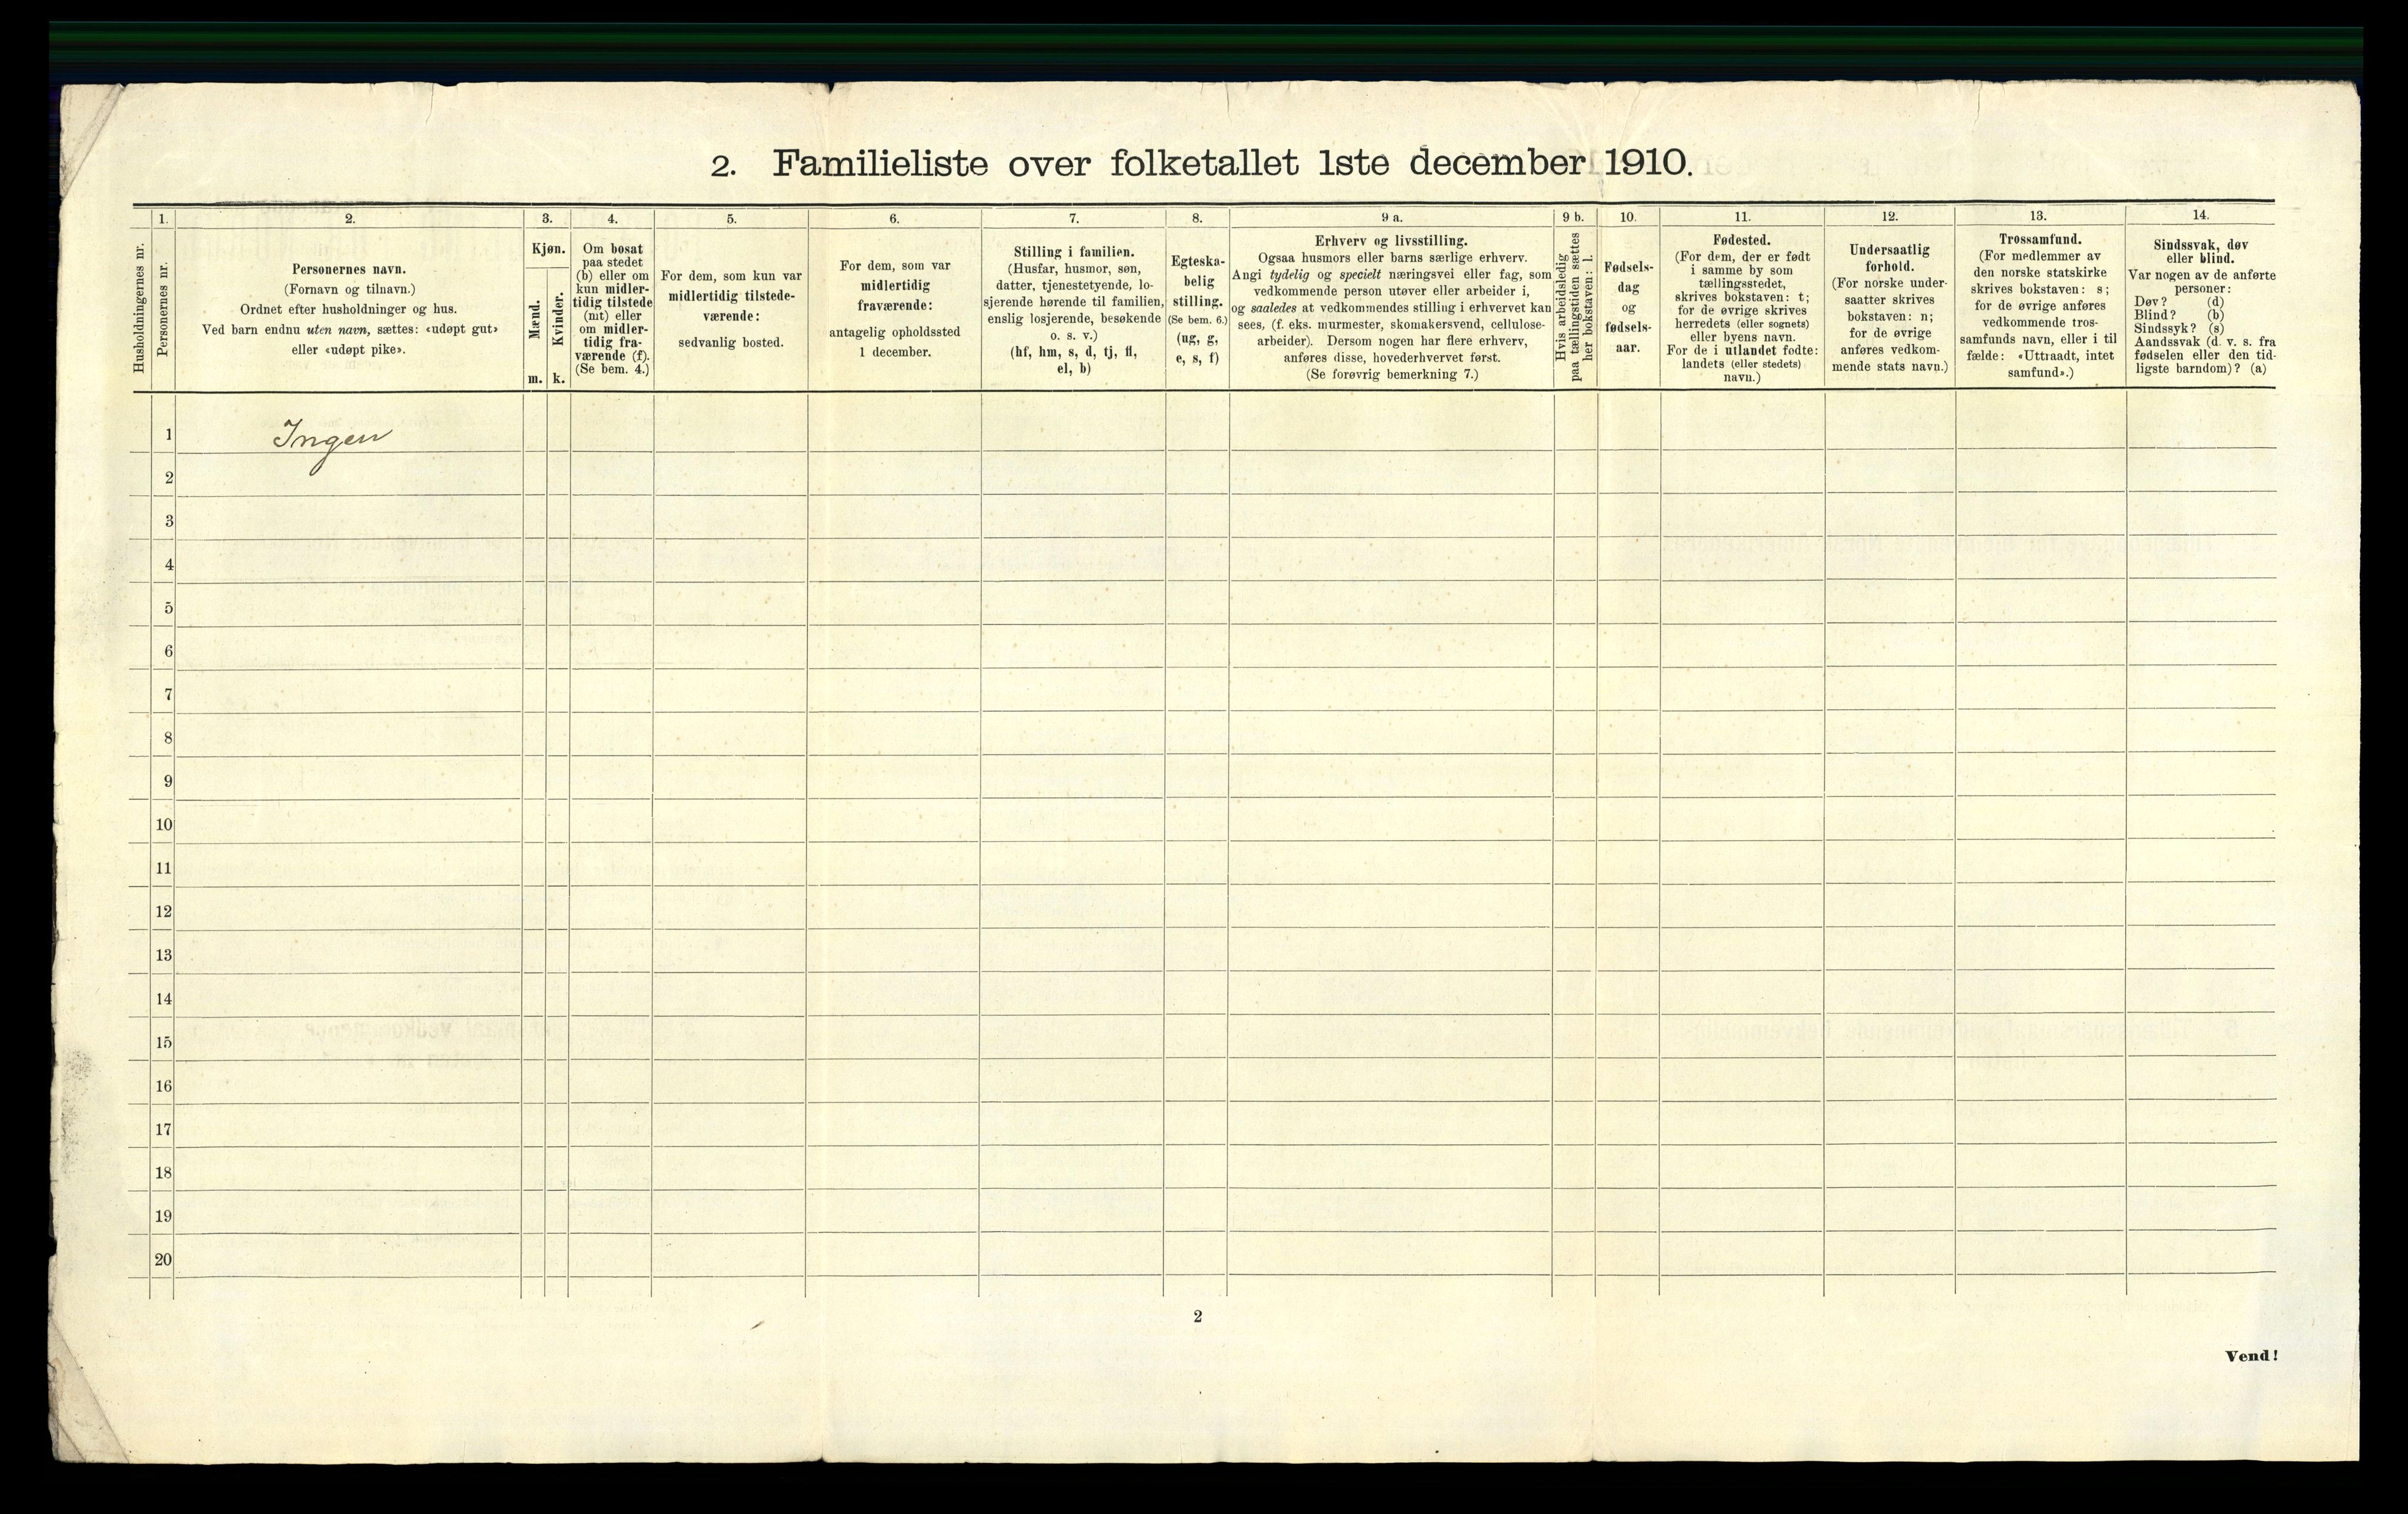 2. Familieliste over folketallet 1ste december 1910.
Husholdningernes nr.
1.
Personernes nr.
2.
Personernes navn.
(Fornavn og tilnavn.)
Ordnet efter husholdninger og hus.
Ved barn endnu uten navn, sættes: «udøpt gut»
eller «udøpt pike».
3.
Kjøn.
Mænd.
m.
Kvinder.
k.
4.
Om bosat
paa stedet
(b) eller om
kun midler-
tidig tilstede
(mt) eller
om midler-
tidig fra-
værende (f).
(Se bem. 4.)
5.
For dem, som kun var
midlertidig tilstede-
værende:
sedvanlig bosted.
6.
For dem, som var
midlertidig
fraværende:
antagelig opholdssted
1 december.
7.
Stilling i familien.
(Husfar, husmor, søn,
datter, tjenestetyende, lo-
sjerende hørende til familien,
enslig losjerende, besøkende
o. s. v.)
(hf, hm, s, d, tj, fl,
el, b)
8.
Egteska-
belig
stilling.
(Se bem. 6.)
(ug, g,
e, s, f)
9 a.
Erhverv og livsstilling.
Ogsaa husmors eller barns særlige erhverv.
Angi tydelig og specielt næringsvei eller fag, som
vedkommende person utøver eller arbeider i,
og saaledes at vedkommendes stilling i erhvervet kan
sees, (f. eks. murmester, skomakersvend, cellulose-
arbeider). Dersom nogen har flere erhverv,
anføres disse, hovederhvervet først.
(Se forøvrig bemerkning 7.)
9 b.
Hvis arbeidsledig
paa tællingstiden sættes
her bokstaven: l.
10.
Fødsels-
dag
og
fødsels-
aar.
11.
Fødested.
(For dem, der er født
i samme by som
tællingsstedet,
skrives bokstaven: t;
for de øvrige skrives
herredets (eller sognets)
eller byens navn.
For de i utlandet fødte:
landets (eller stedets)
navn.)
12.
Undersaatlig
forhold.
(For norske under-
saatter skrives
bokstaven: n;
for de øvrige
anføres vedkom-
mende stats navn.)
13.
Trossamfund.
(For medlemmer av
den norske statskirke
skrives bokstaven: s;
for de øvrige anføres
vedkommende tros-
samfunds navn, eller i til
fælde: «Uttraadt, intet
samfund».)
14.
Sindssvak, døv
eller blind.
Var nogen av de anførte
personer:
Døv? (d)
Blind? (b)
Sindssyk? (s)
Aandssvak (d. v. s. fra
fødselen eller den tid-
ligste barndom)? (a)
1 Ingen
2
3
4
5
6
7
8
9
10
11
12
13
14
15
16
17
18
19
20
2
Vend!